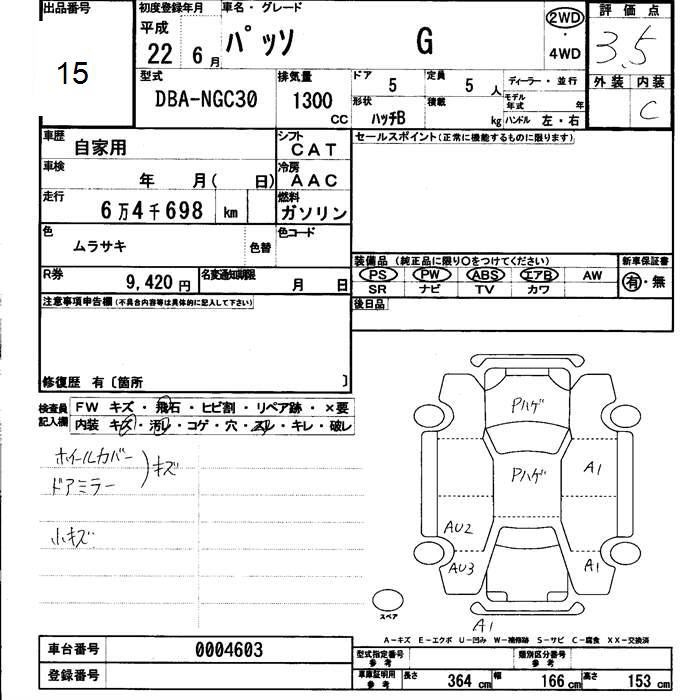 出品番号
15
初度登録年月
平成
22 6月
車名・グレード
パッソ G
2WD
・
4WD
評価点
3.5
外装 内装
C
型式
DBA-NGC30
排気量
1300
CC
ドア
5
定員
5 人
ディーラー・並行
形状
ハッチB
積載
kg
モデル年式 年
ハンドル 左・右
車歴
自家用
シフト
CAT
セールスポイント(正常に機能するものに限ります)
車検
年 月( 日)
冷房
AAC
走行
6万4千698 km
燃料
ガソリン
色
ムラサキ
色替
色コード
装備品 (純正品に限り〇をつけてください)
PS PW ABS エアB AW
SR ナビ TV カワ
新車保証書
有・無
R券
9,420円
名変通知期限
月 日
後日品
注意事項申告欄(不具合内容等は具体的に記入して下さい)
修復歴 有〔箇所 〕
検査員
記入欄
FW キズ・飛石・ヒビ割・リペア跡・×要
内装 キズ・汚レ・コゲ・穴・スレ・キレ・破レ
ホイールカバー
ドアミラー
)キズ
小キズ
Pハゲ
Pハゲ
A1
AU2
AU3
A1
スペア
A1
A-キズ E-エクボ U-凹み W-補修跡 S-サビ C-腐食 XX-交換済
車台番号
0004603
登録番号
型式指定番号
参考
類別区分番号
参考
車庫証明用
参考
長さ 364 cm 幅 166 cm 高さ 153 cm